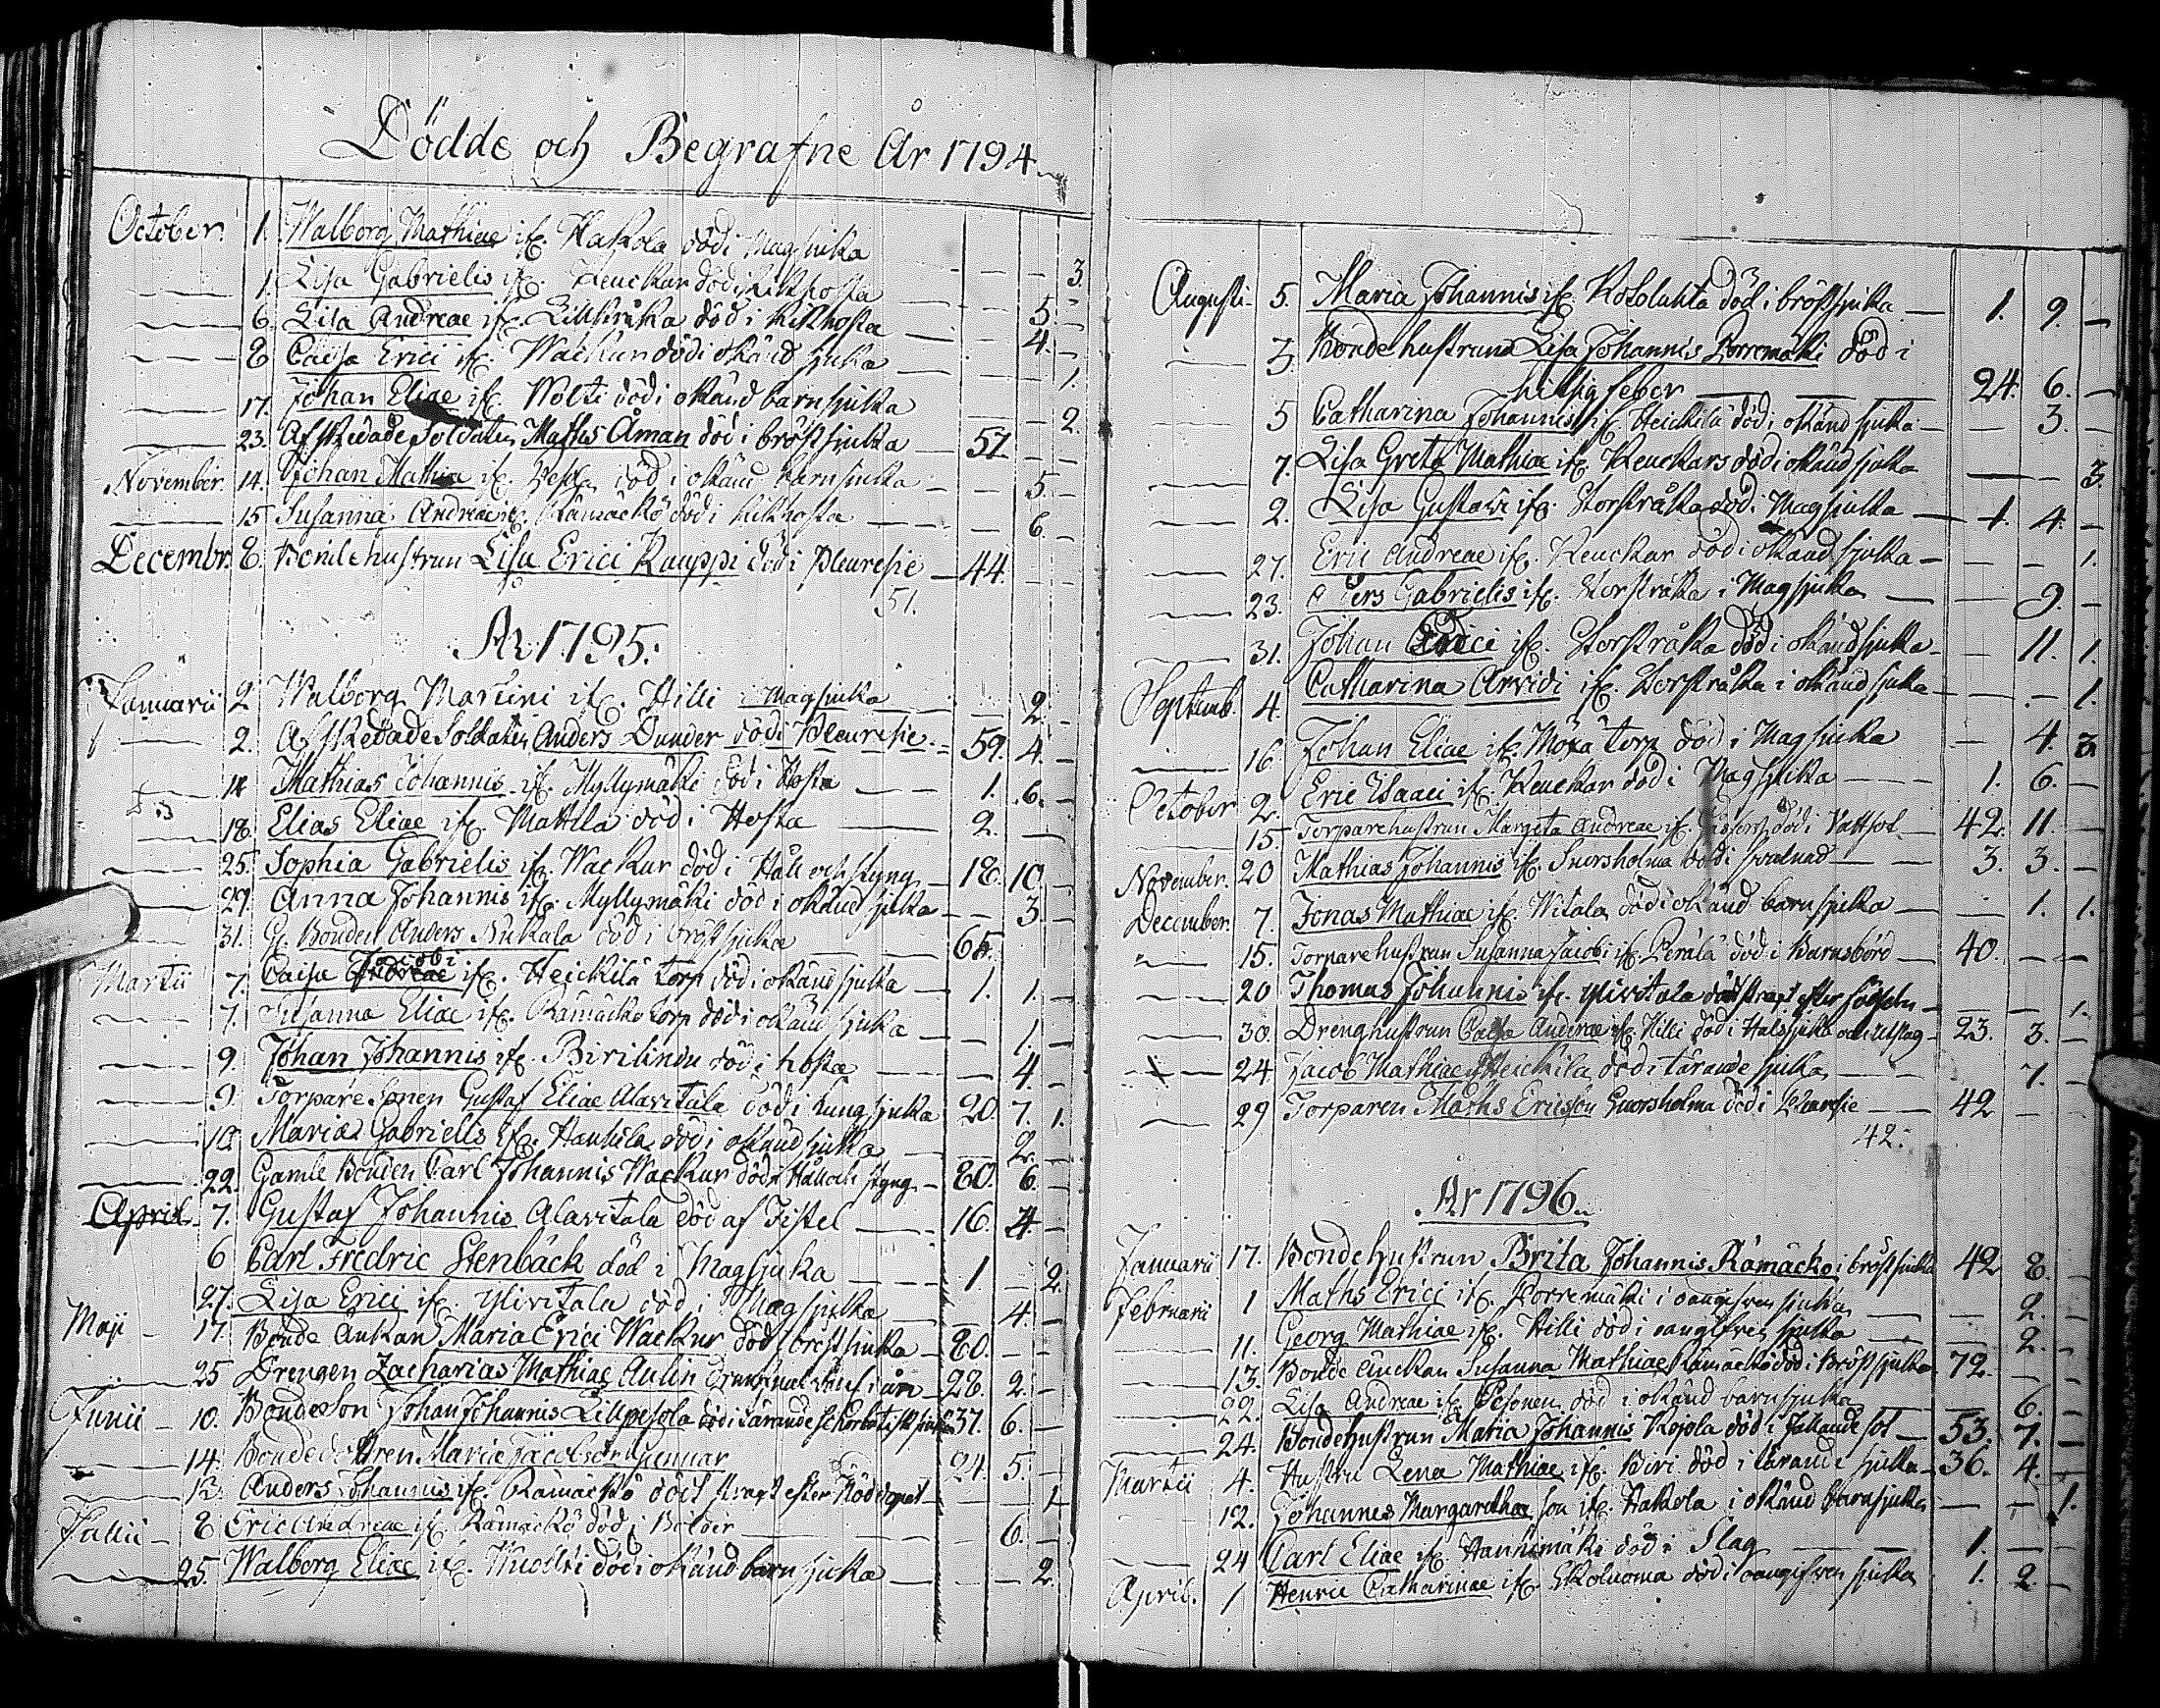 Dödde och Begrafne År 1794
October. 1. Walborg Mathiae if. Hakola död i Magsjuka — — 3.
— 1. Lisa Gabrielis if. Keuckar död i Kikhosta — 5. —
— 6. Lisa Andreae if. Lillstråka död i Kikhosta — 4. —
— 8 Caisa Erici if. Wackur död i okänd sjuka — — 1.
— 17. Johan Eliae if. Wolti död i okänd barnsjuka — — 2.
— 23. Afskedade Soldaten Maths Åman död i bröstsjuka — 57. — —
November. 14. Johan Mathiae if. död i okänd barnsjuka — — 5. —
— 15 Susanna Andreae if. Rämäckö död i Kikhosta — — 6. —
Decembr. 8. Bondehustrun Lisa Erici Kauppi död i Pleuresie — 44. — —
51.
År 1795.
Januarii 2 Walborg Martini if. Hilli i Magsjuka — — 2. —
— 2. Afskedade Soldaten Anders Dunder död i Pleuresie. — 59. 4. —
— 14 Mathias Johannis if. Myllymäki död i Hosta — 1. 6. —
— 18. Elias Eliae if. Mattila död i Hosta — 2. — —
— 25. Sophia Gabrielis if. Wackur död i Håll och styng — 18. 10. —
— 29 Anna Johannis if. Myllymäki död i okänd sjuka — — 3. —
— 31. Gl. Bonden Anders död i bröstsjuka — 65. — —
Martii 7. Caisa Jacobi if. Heickilä torp död i okänd sjuka — 1. 1. —
— 7. Susanna Eliae if. Rämäckö torp död i okänd sjuka — — 1. —
— 9. Johan Johannis if. Birilindu död i hosta — — 4. —
— 9. Torpare Sonen Gustaf Eliae Alavitala död i Lungsjuka 20. 7. 1.
— 10. Maria Gabrielis if. Hanhila död i okänd sjuka — — 2. —
— 22. Gamle Bonden Carl Johannis Wackur död i Håll och styng — 80. 6. —
April 7. Gustaf Johannis Alavitala död af Fistel — 16. 4. —
6 Carl Fredric Stenbäck död i Magsjuka — 1. — 2.
27. Lisa Erici if. Ylivitala död i Magsjuka — — 4. —
Maji — 17. Bonde Enkan Maria Erici Wackur död i bröstsjuka — 80. — —
— 25 Drengen Zacharias Mathiae Aulin i ån — 28. 2. —
Junii — 10. Bondeson Johan Johannis Lillpesola död i tärande 37. 6. —
— 14. Bondedottren Maria Jacobsdr Gunnar 24. 5. —
— 13. Anders Johannis if. Rämäckö död strax efter Nöddopet — — 1.
Julii — 8 Eric Andreae if. Rämäckö död i — 6. —
— 25. Walborg Eliae if. död i okänd barnsjuka — — 2.
Augusti — 5. Maria Johannis if. Kotolahta död i bröstsjuka — 1. 9. —
— 3. Bondehustrun Lisa Johannis Porremäki död i
hitsig feber — 24. 6. —
— 5 Catharina Johannis if. Heickilä död i okänd sjuka — — 3. —
— 7. Lisa Greta Mathiae if. Keuckars död i okänd sjuka — — 3.
— 2. Lisa Gustavi if. Storstråka död i Magsjuka — 1. 4. —
— 27. Eric Andreae if. Keuckar död i okänd sjuka — — — 1.
— 23. Anders Gabrielis if. Storstråka i Magsjuka — — 9. —
— 31. Johan Erici if. Storstråka död i okänd sjuka — — 11. 1.
Septemb. 4. Catharina Arvidi if. Storstråka i okänd sjuka — — — 1.
— 16. Johan Eliae if. torp död i Magsjuka — 4. 3.
October 2. Eric Esaaci if. Keuckar död i Magsjuka — 1. 6. —
— 15. Torparehustrun Margeta Andreae if. död i Vattsot — 42. 11. —
November. 20 Mathias Johannis if. Snorsholma död i svalnad — 3. 3. —
December. 7. Jonas Mathiae if. Witala död i okänd barnsjuka — — 1. 1.
— 15. Torparehustrun Susanna Jacobi if. Perälä död i Barnsbörd — 40. — —
— 20 Thomas Johannis if. Ylivitala död strax efter födseln — — — 1.
— 30. Drenghustrun Caisa Andreae if. Hilli död i Halssjuka och Utslag — 23. 3. —
— 24 Jacob Mathiae Heickilä död i tärande sjuka — 7. —
— 29 Torparen Maths Ericson Snorsholma död i Pleuresie — 42 — —
42.
År 1796.
Januarii 17. Bondehustrun Brita Johannis Rämäckö i bröstsjuka 42 8. —
Februarii 1 Maths Erici if. Porremäki i oangifven sjuka — — 2. —
— 11. Georg Mathiae if. Hilli död i oangifven sjuka — — 2. —
— 13. Bonde Enckan Susanna Mathiae Rämäckö död i Bröstsjuka 72. — —
— 22. Lisa Andreae if. Pesonen död i okänd barnsjuka — — 6. —
— 24. Bondehustrun Maria Johannis Kojola död i fallande sot — 53. 7. —
Martii 4. Hustru Lena Mathiae if. Biri död i tärande sjuka — 36. 4. —
— 12. Johannes Margarethae son if. Hakola i okänd barnsjuka — — 1.
— 24 Carl Eliae if. Hanhimäki död i Slag — 1. — —
April. 1 Henric Catharinae if. död i oangifven sjuka 1. 2. —